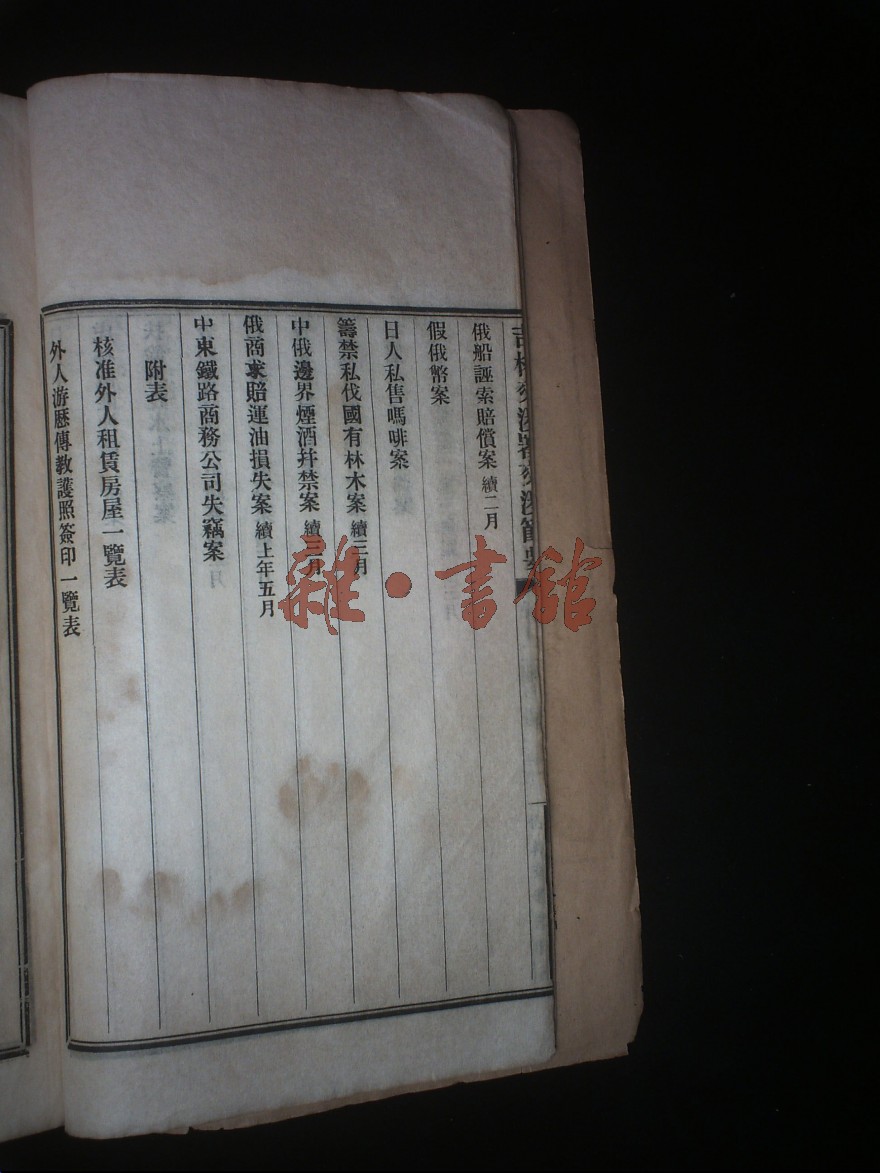 俄船誣索賠償案 續二月
假俄幣案
日人私售嗎啡案
籌禁私伐國有林木案 續二月
中俄邊界煙酒幷禁案 續三月
俄商求賠運油損失案 續上年五月
中東鐵路商務公司失竊案
附表
核准外人租賃房屋一覽表
外人游歷傳教護照簽印一覽表
雜·書館